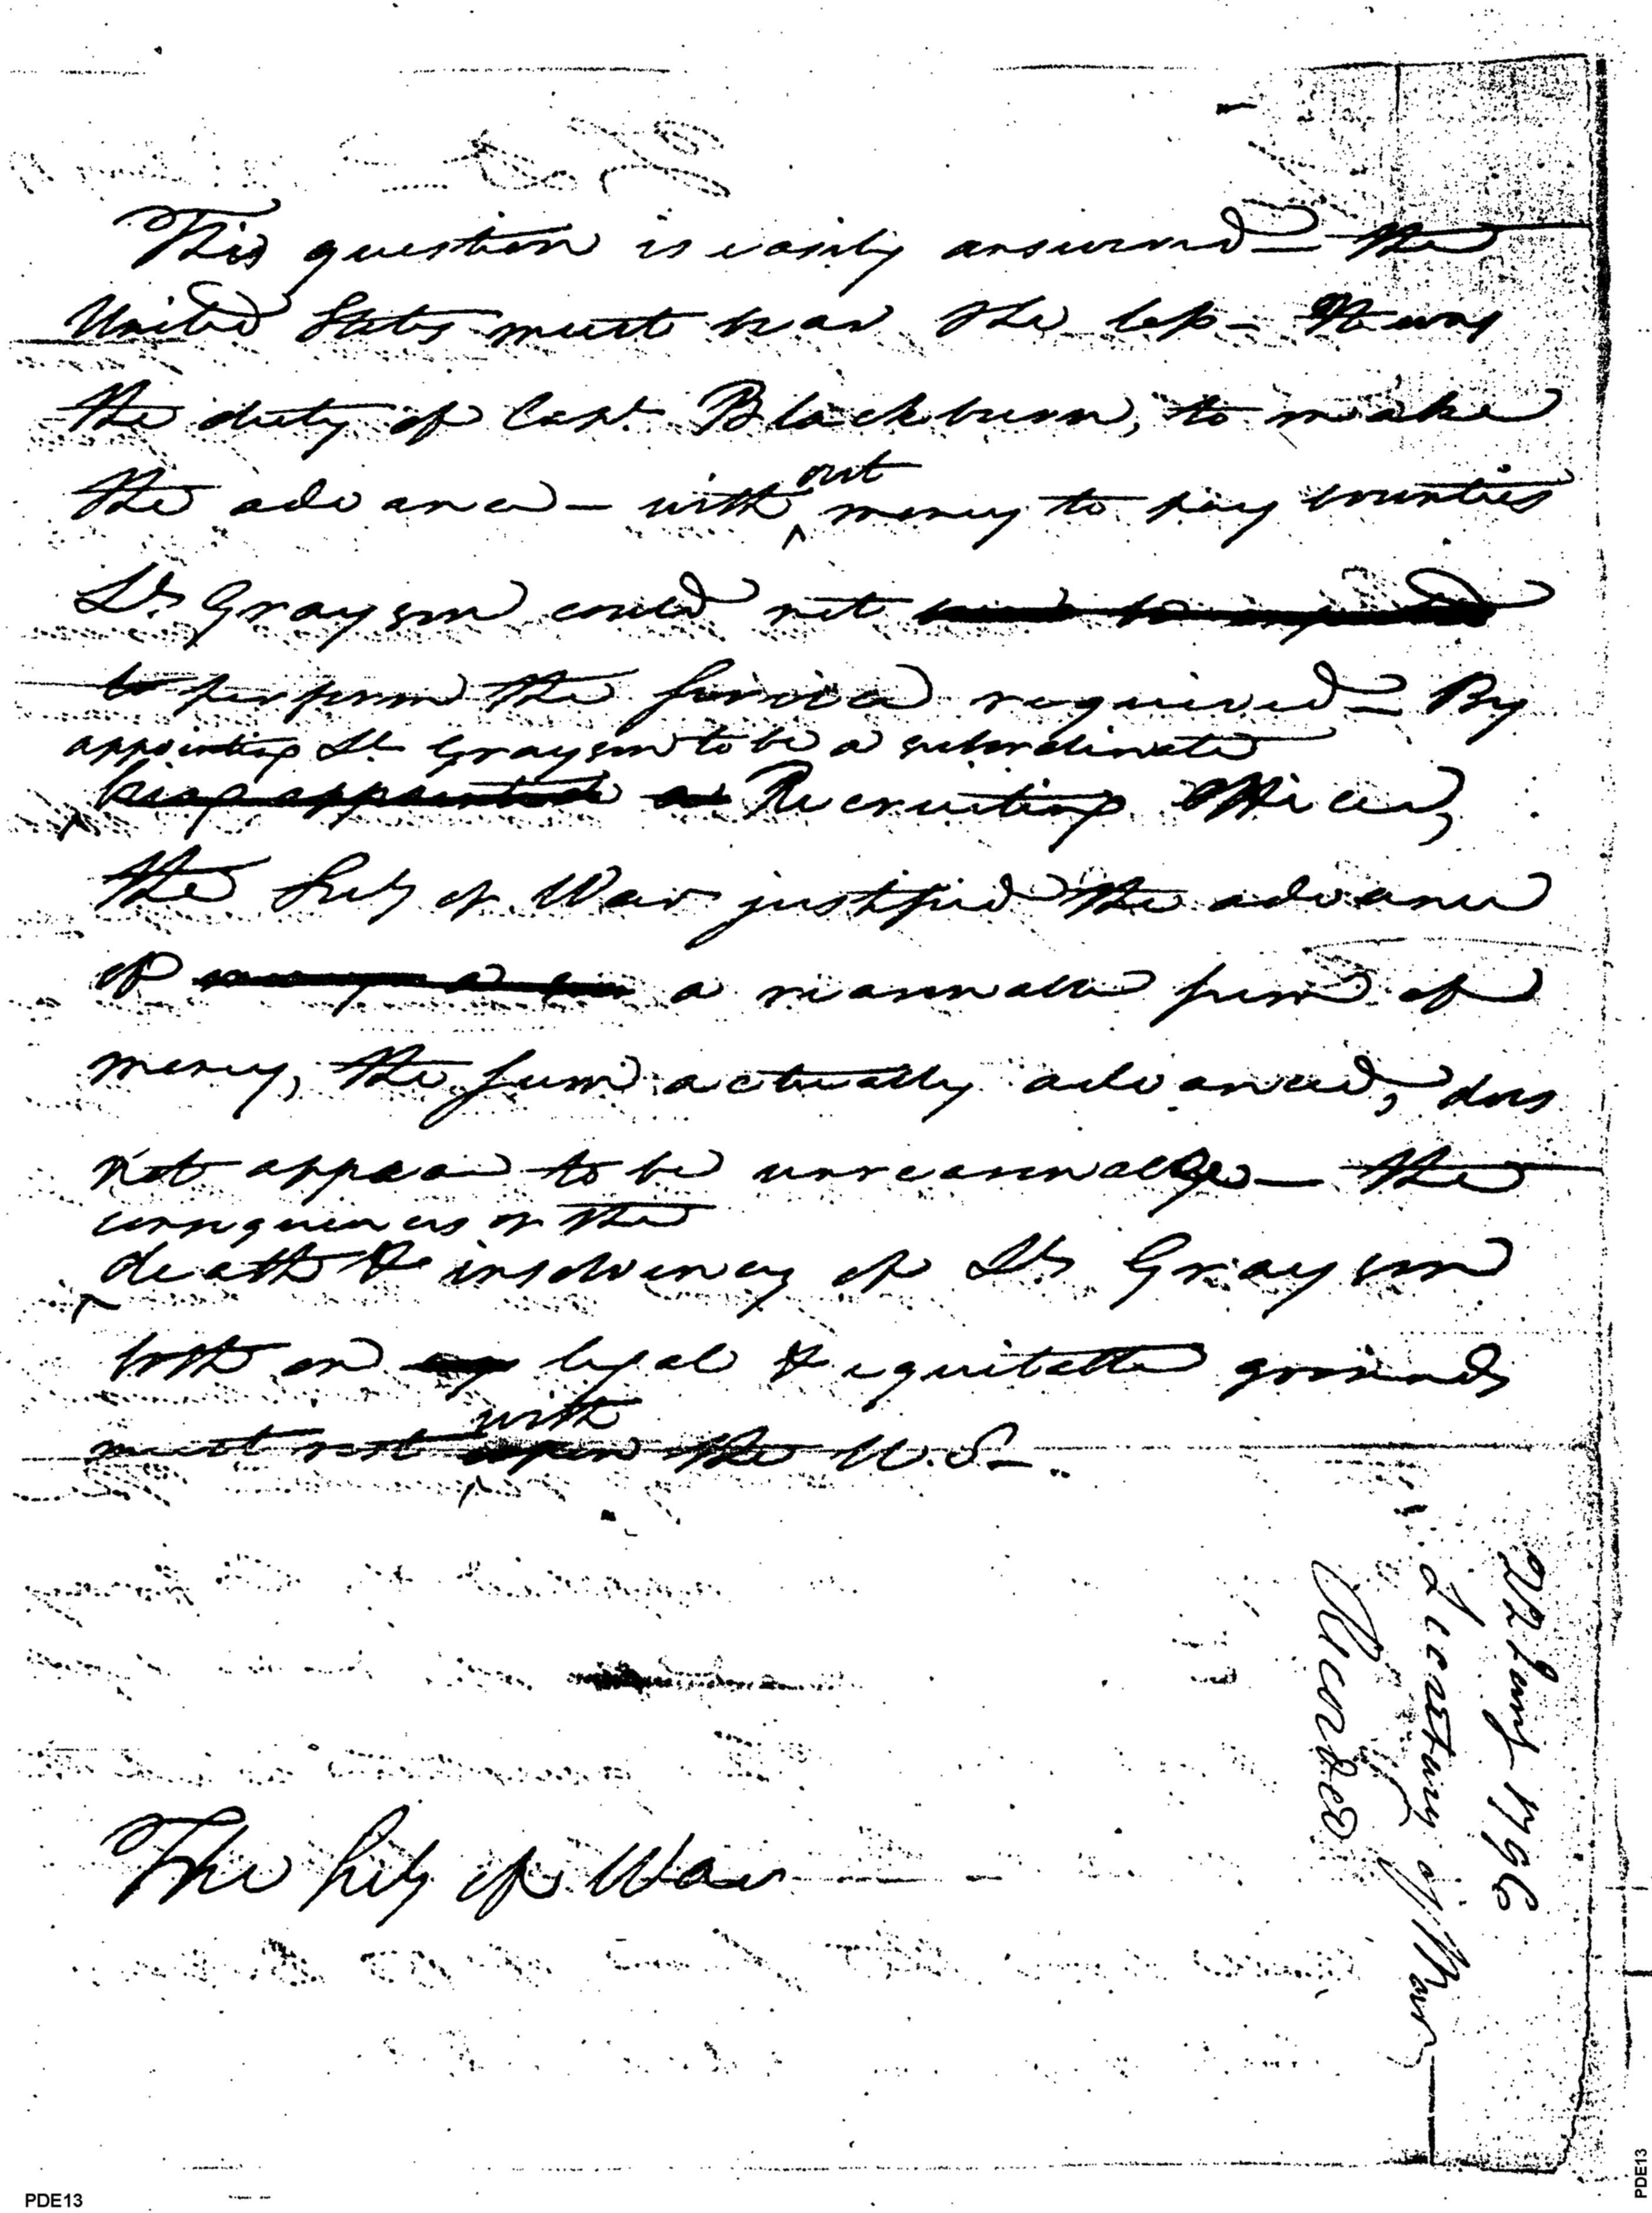 This question is easily answered — the
United States must bear the loss — It was
the duty of Capt. Blackburn, to make
the advance — without money to pay bounties
Lt. Grayson could not
to perform the service required — By
appointing Lt. Grayson to be a subordinate
being appointed a Recruiting Officer,
the Secy of War justified the advance
of a reasonable sum of
money, the sum actually advanced, does
not appear to be unreasonable — the
consequences of the
death & insolvency of Lt. Grayson
both on legal & equitable grounds
with
must rest upon the U.S.—
The Secy of War
22 Jany 1796
Secretary of War
Recorded
PDE13
PDE13